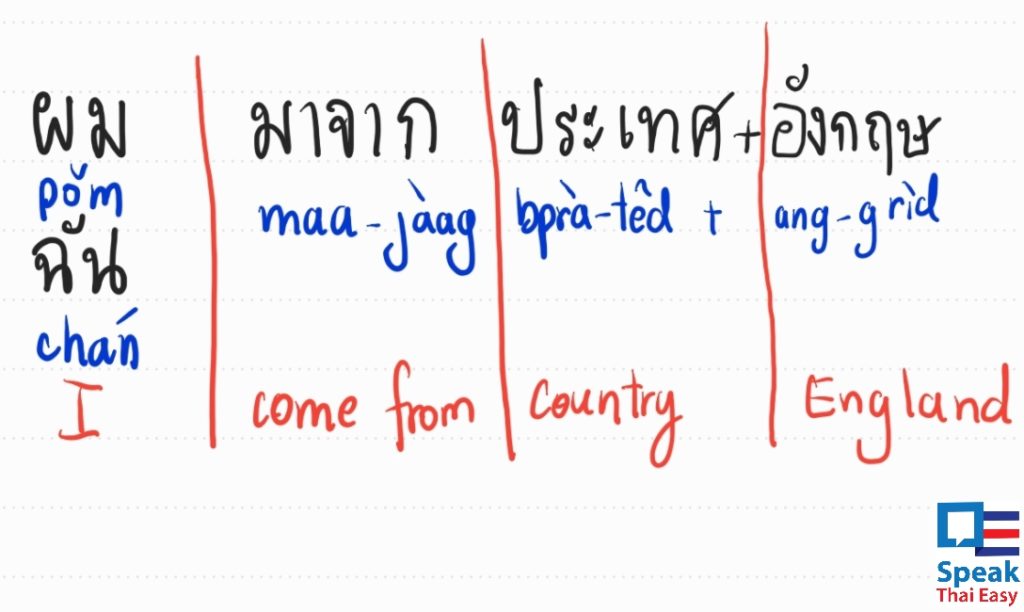 ผม มาจาก ประเทศ + อังกฤษ
pŏm maa-jàag bprà-têd + ang-grìd
ฉัน
chán
I come from Country England
Speak
Thai Easy